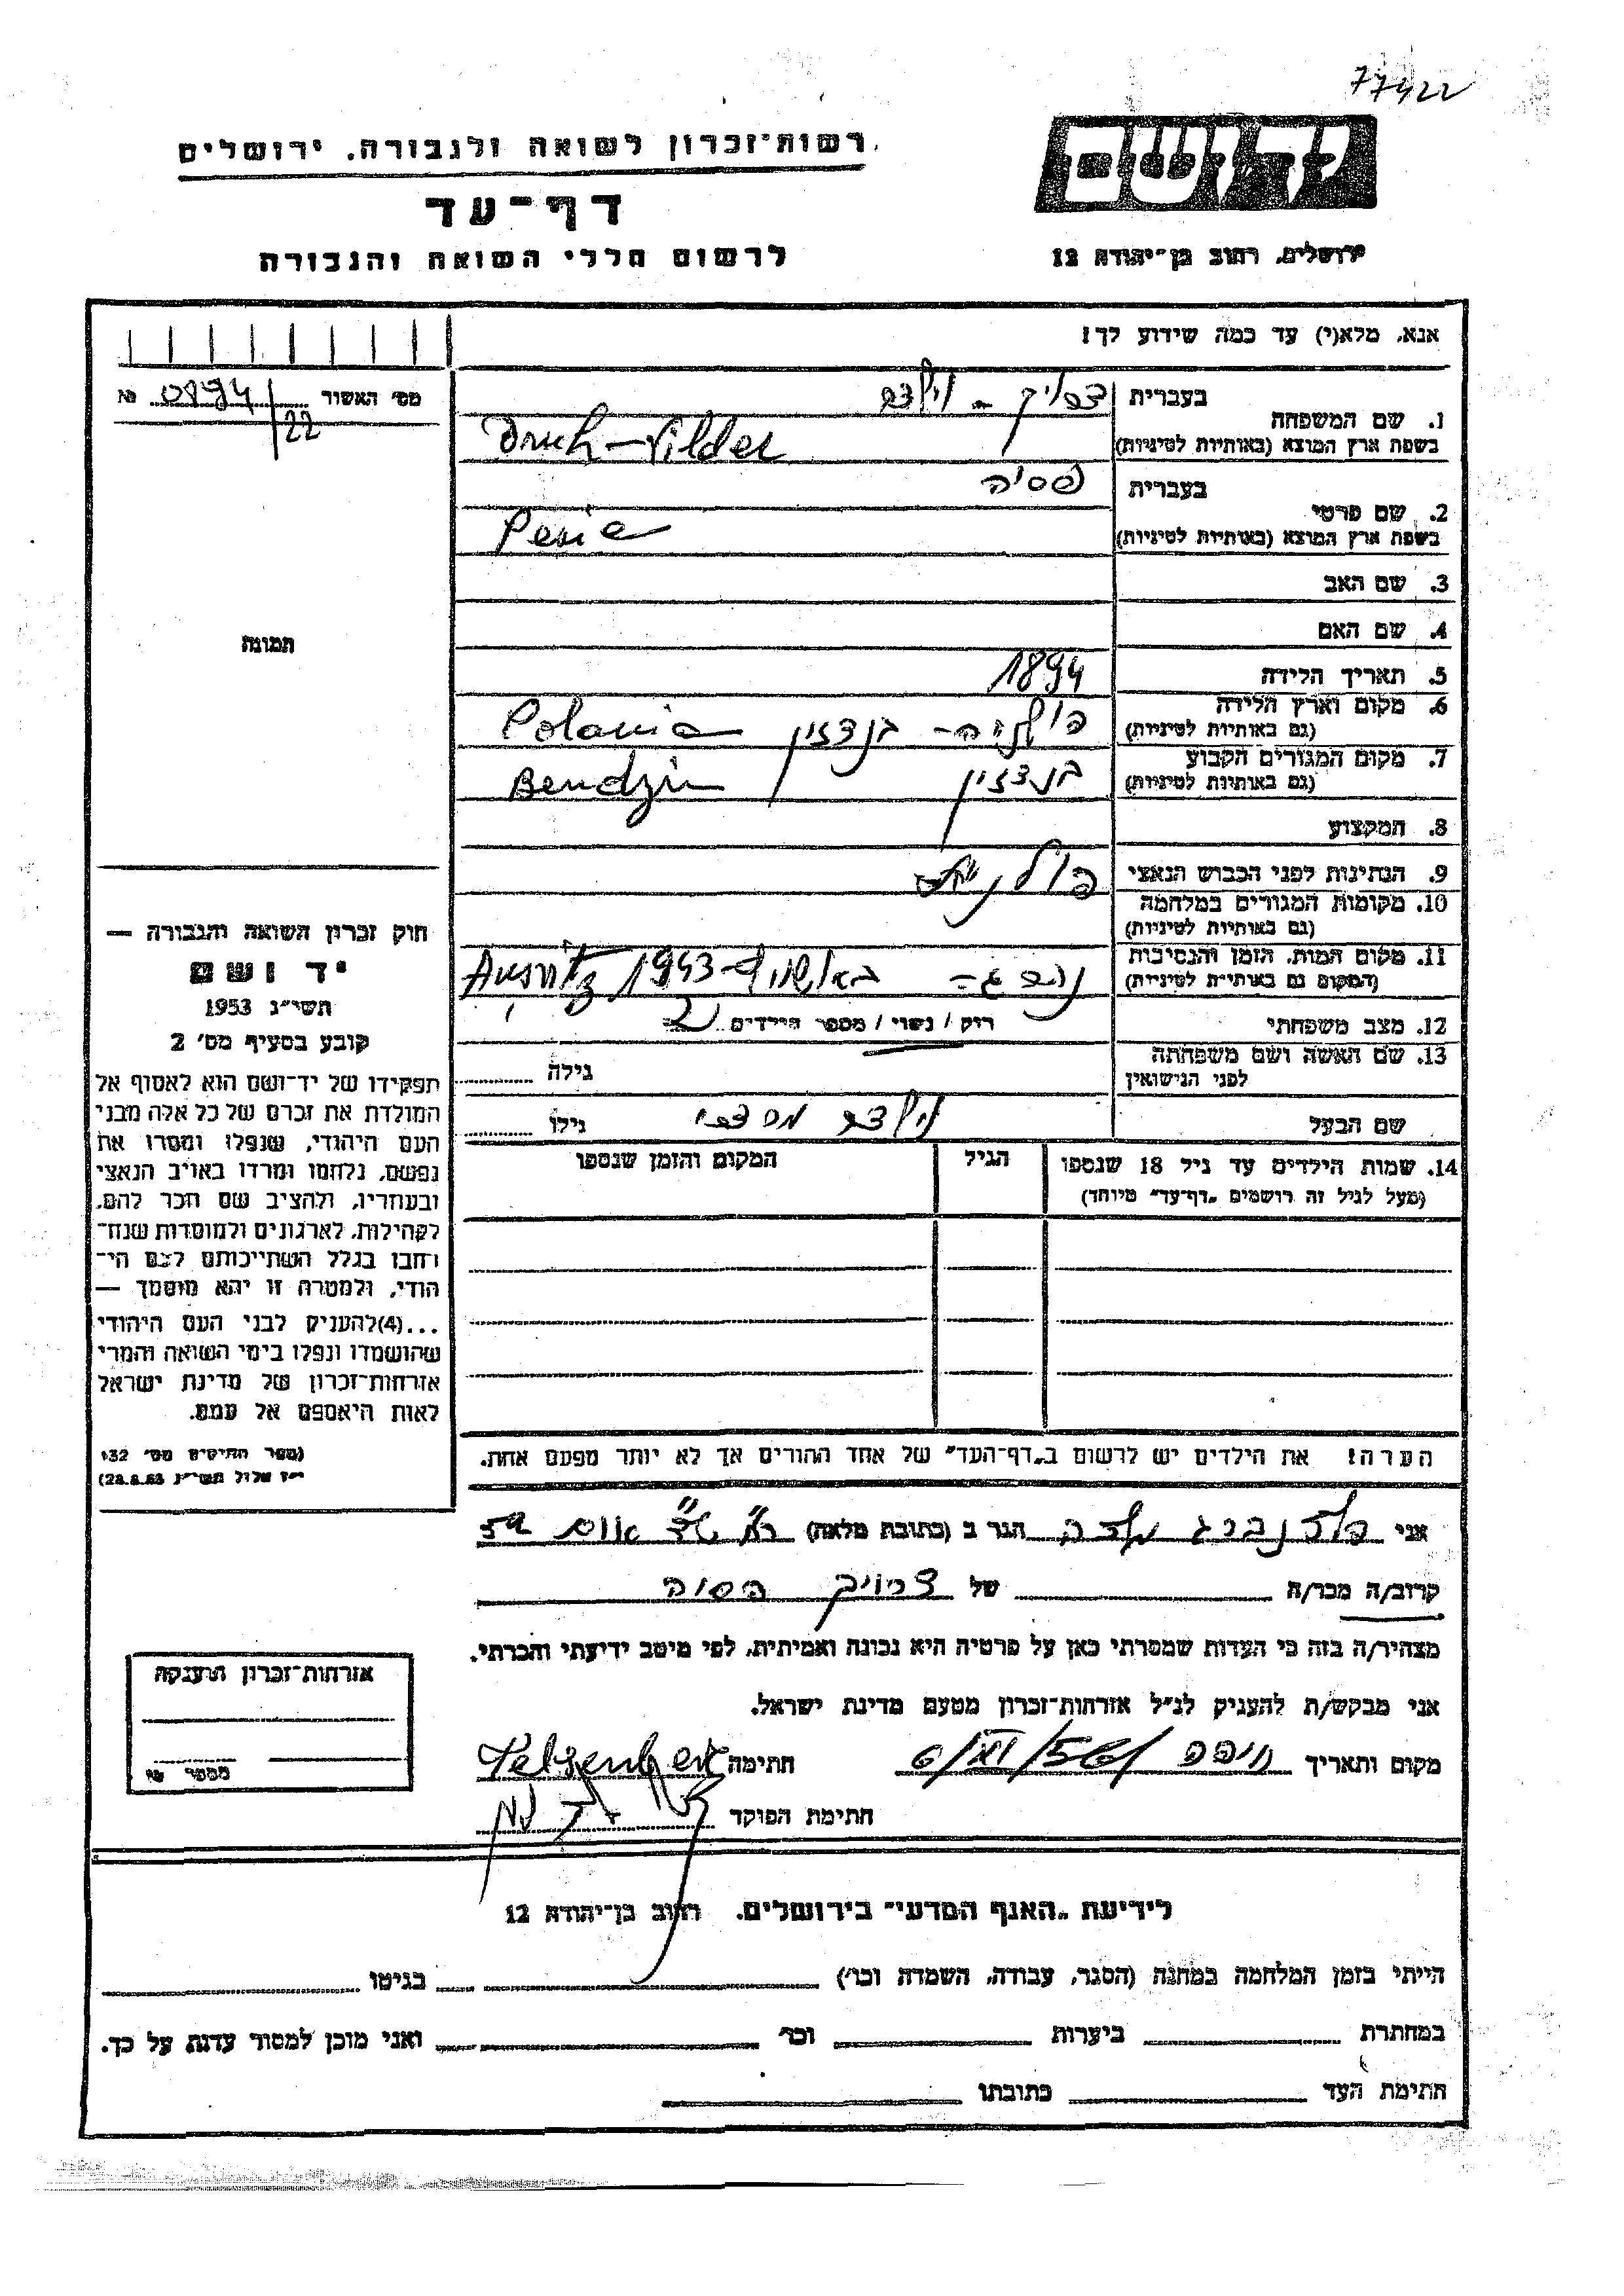 77422
רשות־זכרון לשואה ולגבורה. ירושלים
דף־עד
לרשום חללי השואה והגבורה
יד ושם
ירושלים, רחוב בן־יהודה 12
אנא, מלא(י) עד כמה שידוע לך!
מס׳ האשור 0894/22 №
תמונה
1. שם המשפחה
בעברית
בשפת ארץ המוצא (באותיות לטיניות) Druch-Vilder
2. שם פרטי
בעברית פסיה
בשפת ארץ המוצא (באותיות לטיניות) Pesie
3. שם האב
4. שם האם
5. תאריך הלידה 1894
6. מקום וארץ הלידה פולניה - בנדזין Polania
(גם באותיות לטיניות)
7. מקום המגורים הקבוע בנדזין Bendzin
(גם באותיות לטיניות)
8. המקצוע
9. הנתינות לפני הכבוש הנאצי פולנית
10. מקומות המגורים במלחמה
(גם באותיות לטיניות)
11. מקום המות, הזמן והנסיבות 1943
(המקום גם באותיות לטיניות)
12. מצב משפחתי רוק / נשוי / מספר הילדים 2
13. שם האשה ושם משפחתה גילה
לפני הנישואין
שם הבעל גילו
14. שמות הילדים עד גיל 18 שנספו הגיל המקום והזמן שנספו
(מעל לגיל זה רושמים „דף־עד״ מיוחד)
הערה! את הילדים יש לרשום ב„דף־העד״ של אחד ההורים אך לא יותר מפעם אחת.
חוק זכרון השואה והגבורה —
יד ושם
תשי״ג 1953
קובע בסעיף מס׳ 2
תפקידו של יד־ושם הוא לאסוף אל
המולדת את זכרם של כל אלה מבני
העם היהודי, שנפלו ומסרו את
נפשם, נלחמו ומרדו באויב הנאצי
ובעוזריו, ולהציב שם וזכר להם,
לקהילות, לארגונים ולמוסדות שנח־
רבו בגלל השתייכותם לעם הי־
הודי, ולמטרה זו יהא מוסמך —
...(4)להעניק לבני העם היהודי
שהושמדו ונפלו בימי השואה והמרי
אזרחות־זכרון של מדינת ישראל
לאות היאספם אל עמם.
(ספר החוקים מס׳ 132
י״ז אלול תשי״ג 28.8.53)
אני הגר ב (כתובת מלאה)
קרוב/ה מכר/ה של
מצהיר/ה בזה כי העדות שמסרתי כאן על פרטיה היא נכונה ואמיתית, לפי מיטב ידיעתי והכרתי.
אני מבקש/ת להעניק לנ״ל אזרחות־זכרון מטעם מדינת ישראל.
מקום ותאריך חיפה 6/XI/56 חתימה
חתימת הפוקד
אזרחות־זכרון הוענקה
לידיעת „האגף המדעי״ בירושלים. רחוב בן־יהודה 12
הייתי בזמן המלחמה במחנה (הסגר, עבודה, השמדה וכו׳) בגיטו
במחתרת ביערות וכו׳ ואני מוכן למסור עדות על כך.
חתימת העד כתובתו